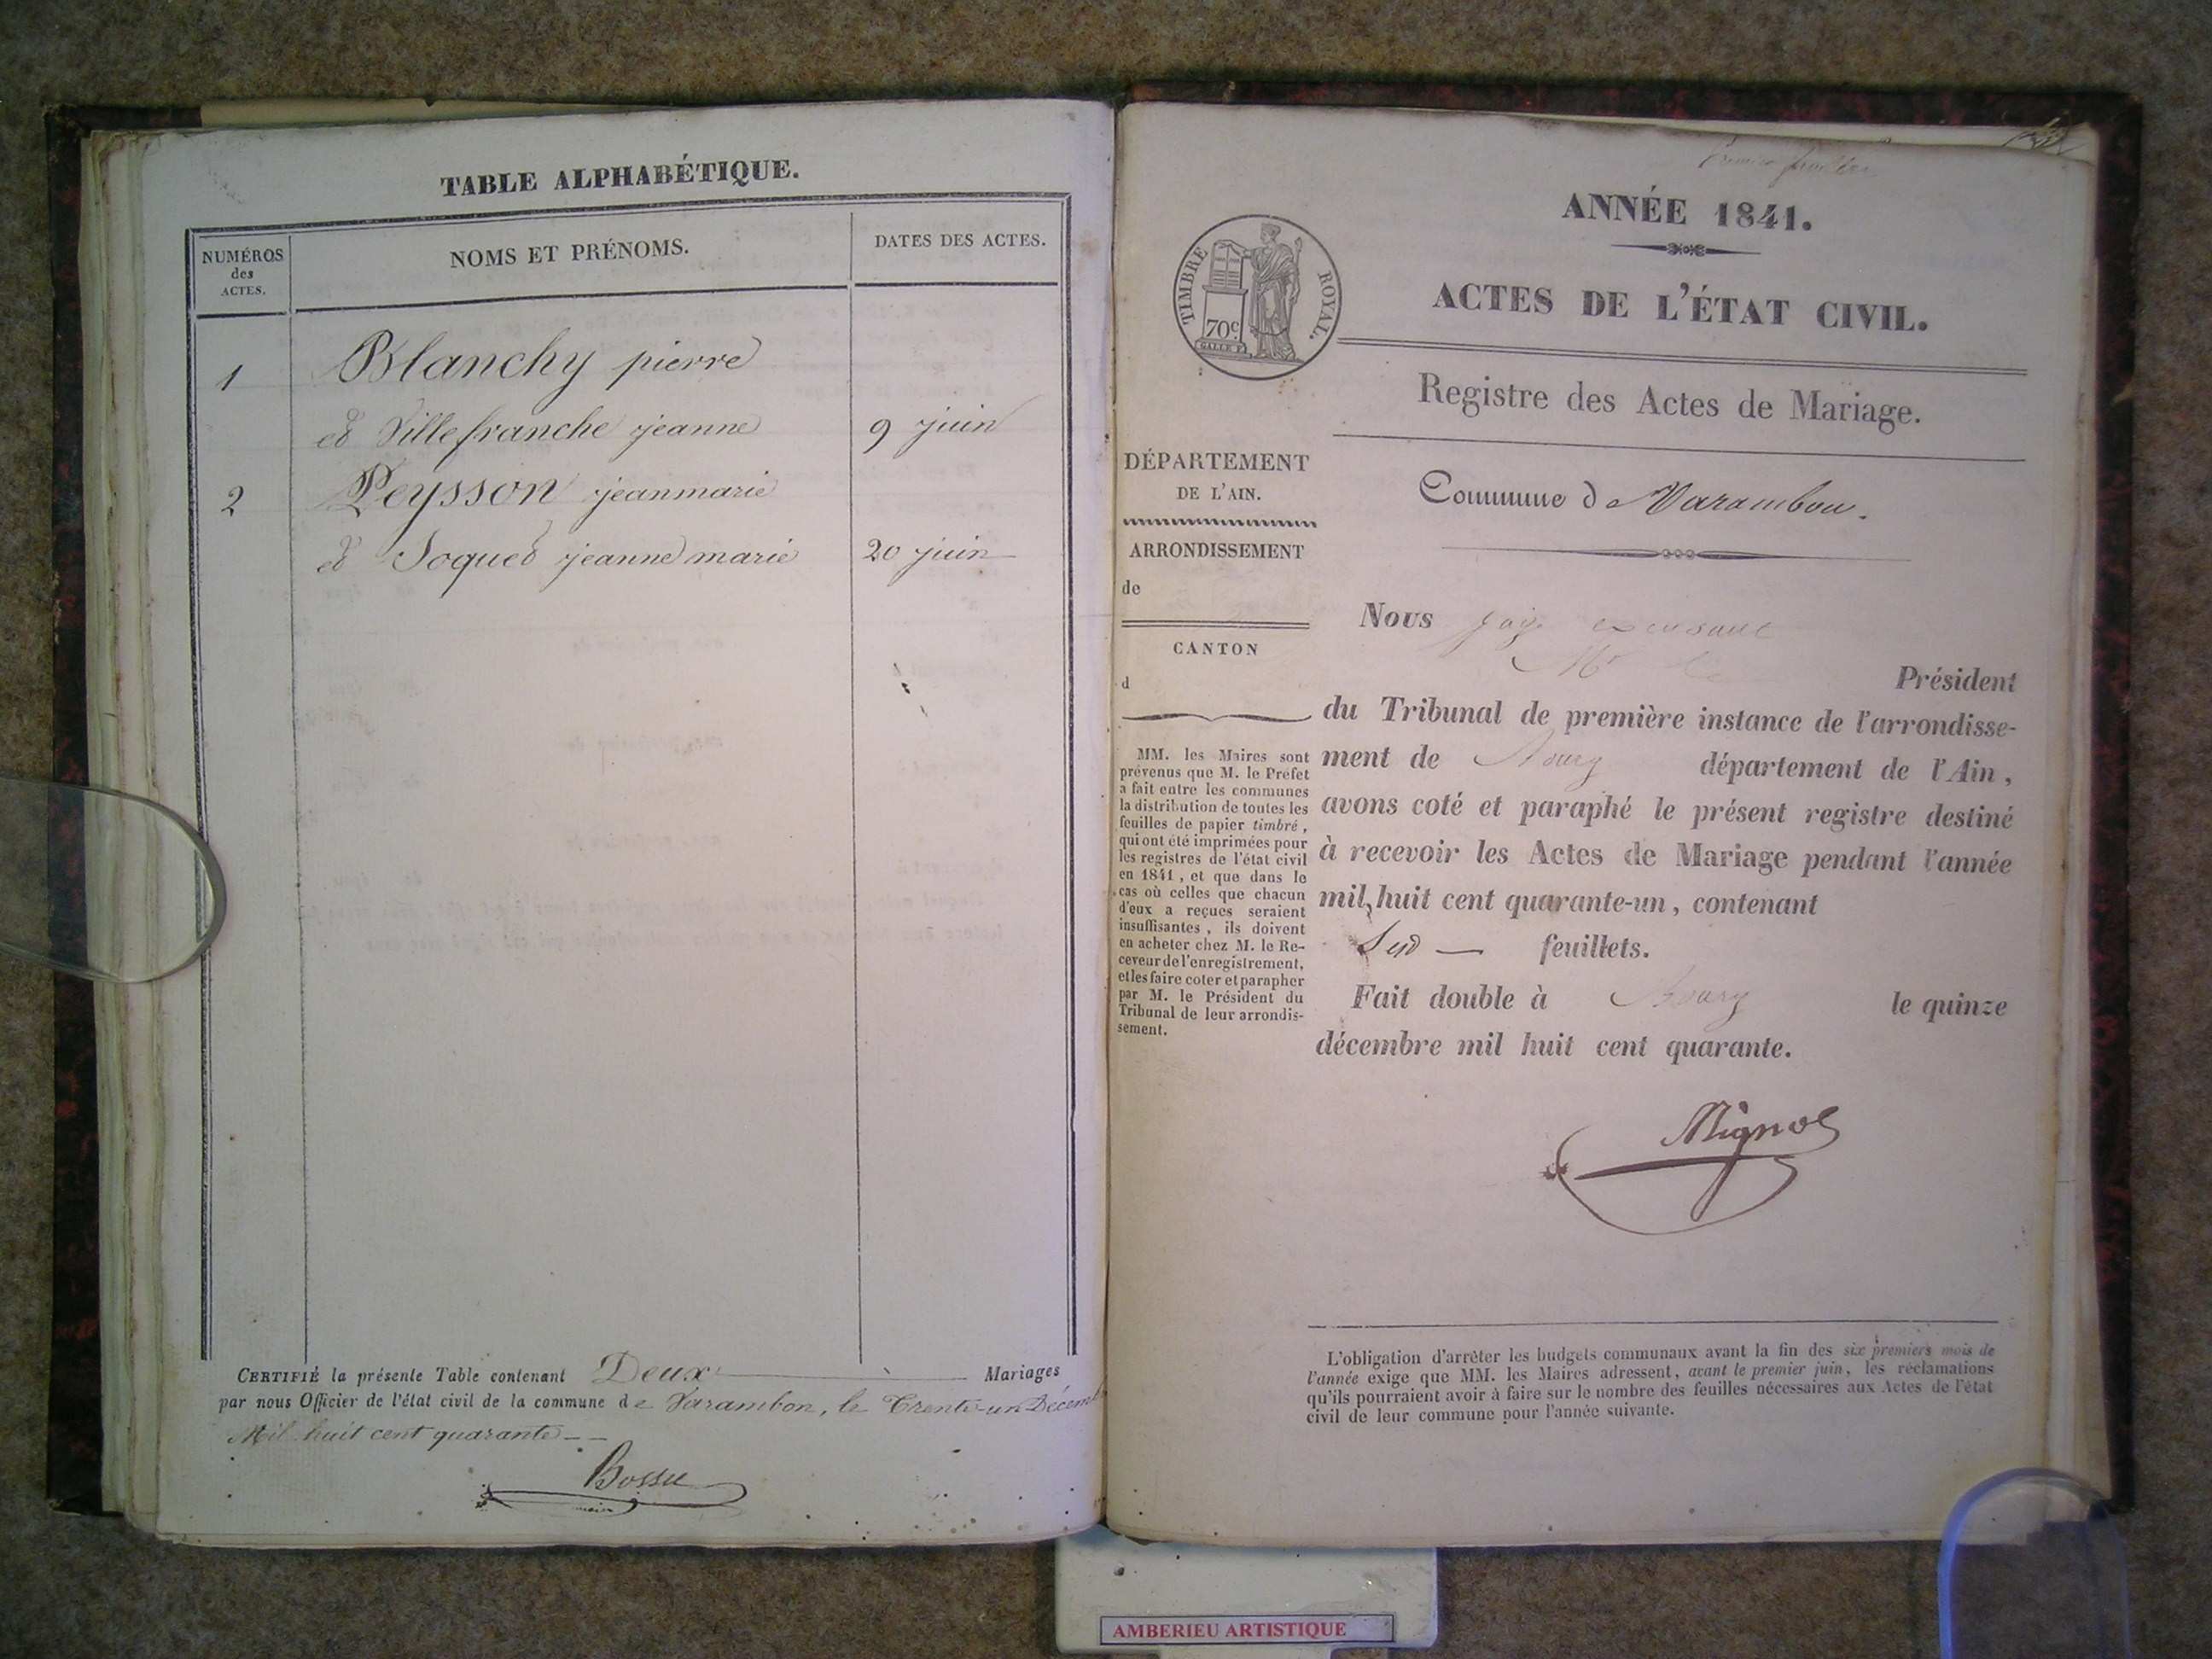 TABLE ALPHABÉTIQUE.
NUMÉROS
des
ACTES.
NOMS ET PRÉNOMS.
DATES DES ACTES.
1 Blanchy pierre
et Villefranche jeanne 9 juin
2 Peysson jeanmarie
et Joquet jeanne marie 20 juin
CERTIFIÉ la présente Table contenant Deux Mariages
par nous Officier de l'état civil de la commune de Varambon, le Trente-un Décembre
Mil huit cent quarante
Bossu
maire
ANNÉE 1841.
ACTES DE L'ÉTAT CIVIL.
TIMBRE ROYAL.
70c
GALLE F.
Registre des Actes de Mariage.
Commune de Varambon.
DÉPARTEMENT
DE L'AIN.
ARRONDISSEMENT
de
CANTON
d
MM. les Maires sont
prévenus que M. le Préfet
a fait entre les communes
la distribution de toutes les
feuilles de papier timbré,
qui ont été imprimées pour
les registres de l'état civil
en 1841, et que dans le
cas où celles que chacun
d'eux a reçues seraient
insuffisantes, ils doivent
en acheter chez M. le Re-
ceveur de l'enregistrement,
et les faire coter et parapher
par M. le Président du
Tribunal de leur arrondis-
sement.
Nous
Président
du Tribunal de première instance de l'arrondisse-
ment de Bourg département de l'Ain,
avons coté et paraphé le présent registre destiné
à recevoir les Actes de Mariage pendant l'année
mil huit cent quarante-un, contenant
feuillets.
Fait double à Bourg le quinze
décembre mil huit cent quarante.
Mignot
L'obligation d'arrêter les budgets communaux avant la fin des six premiers mois de
l'année exige que MM. les Maires adressent, avant le premier juin, les réclamations
qu'ils pourraient avoir à faire sur le nombre des feuilles nécessaires aux Actes de l'état
civil de leur commune pour l'année suivante.
AMBERIEU ARTISTIQUE